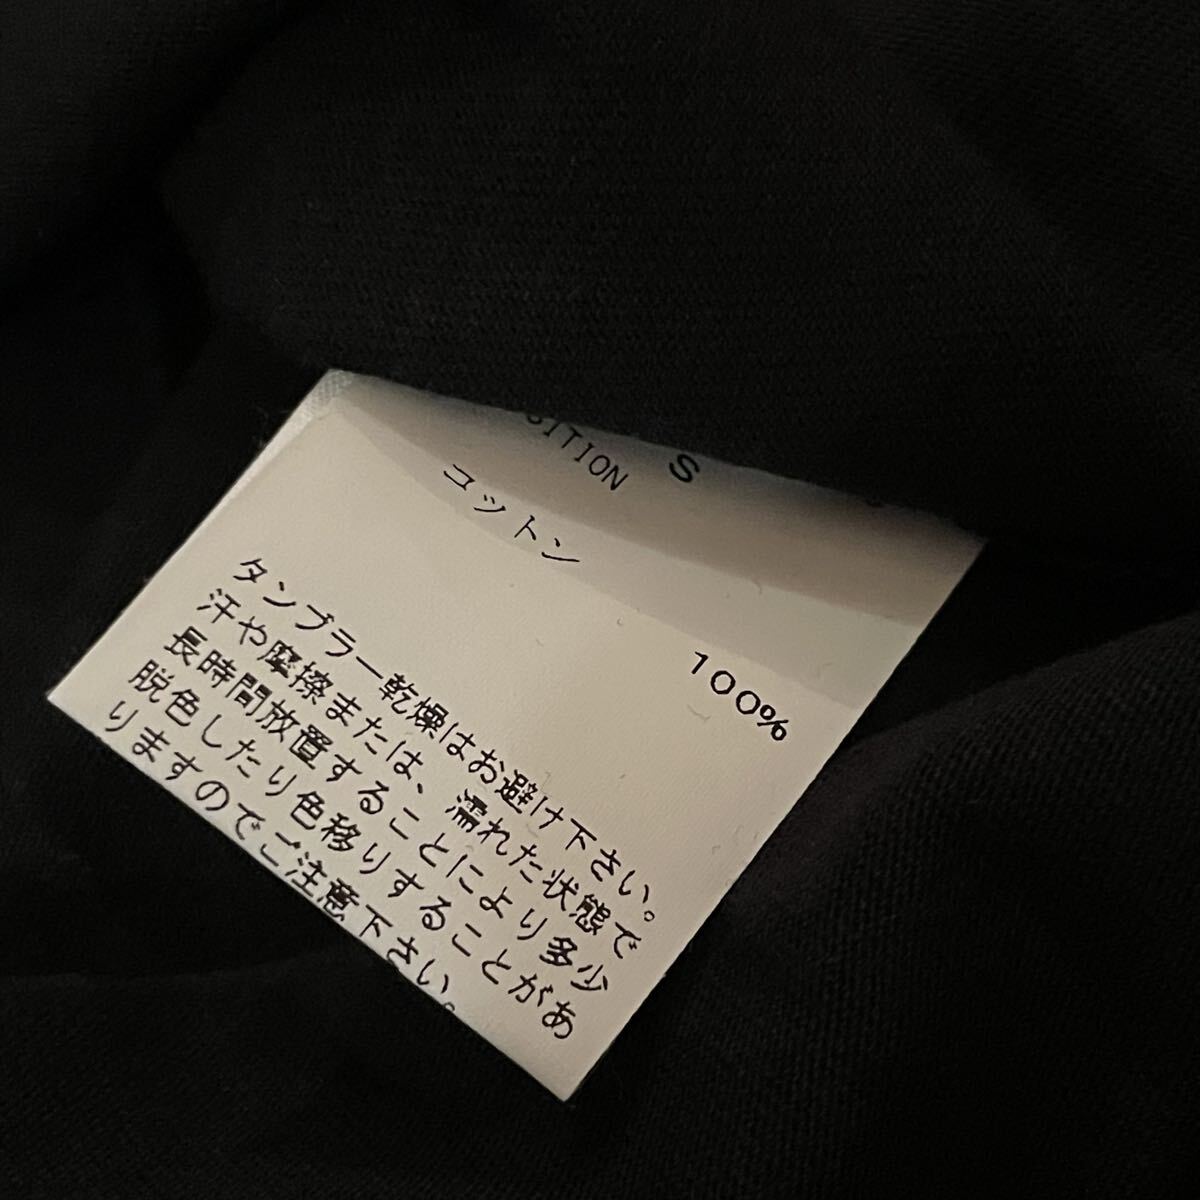 S
SITION
コットン 100%
タンブラー乾燥はお避け下さい。
汗や摩擦または、濡れた状態で
長時間放置することにより多少
脱色したり色移りすることがあ
りますのでご注意下さい。